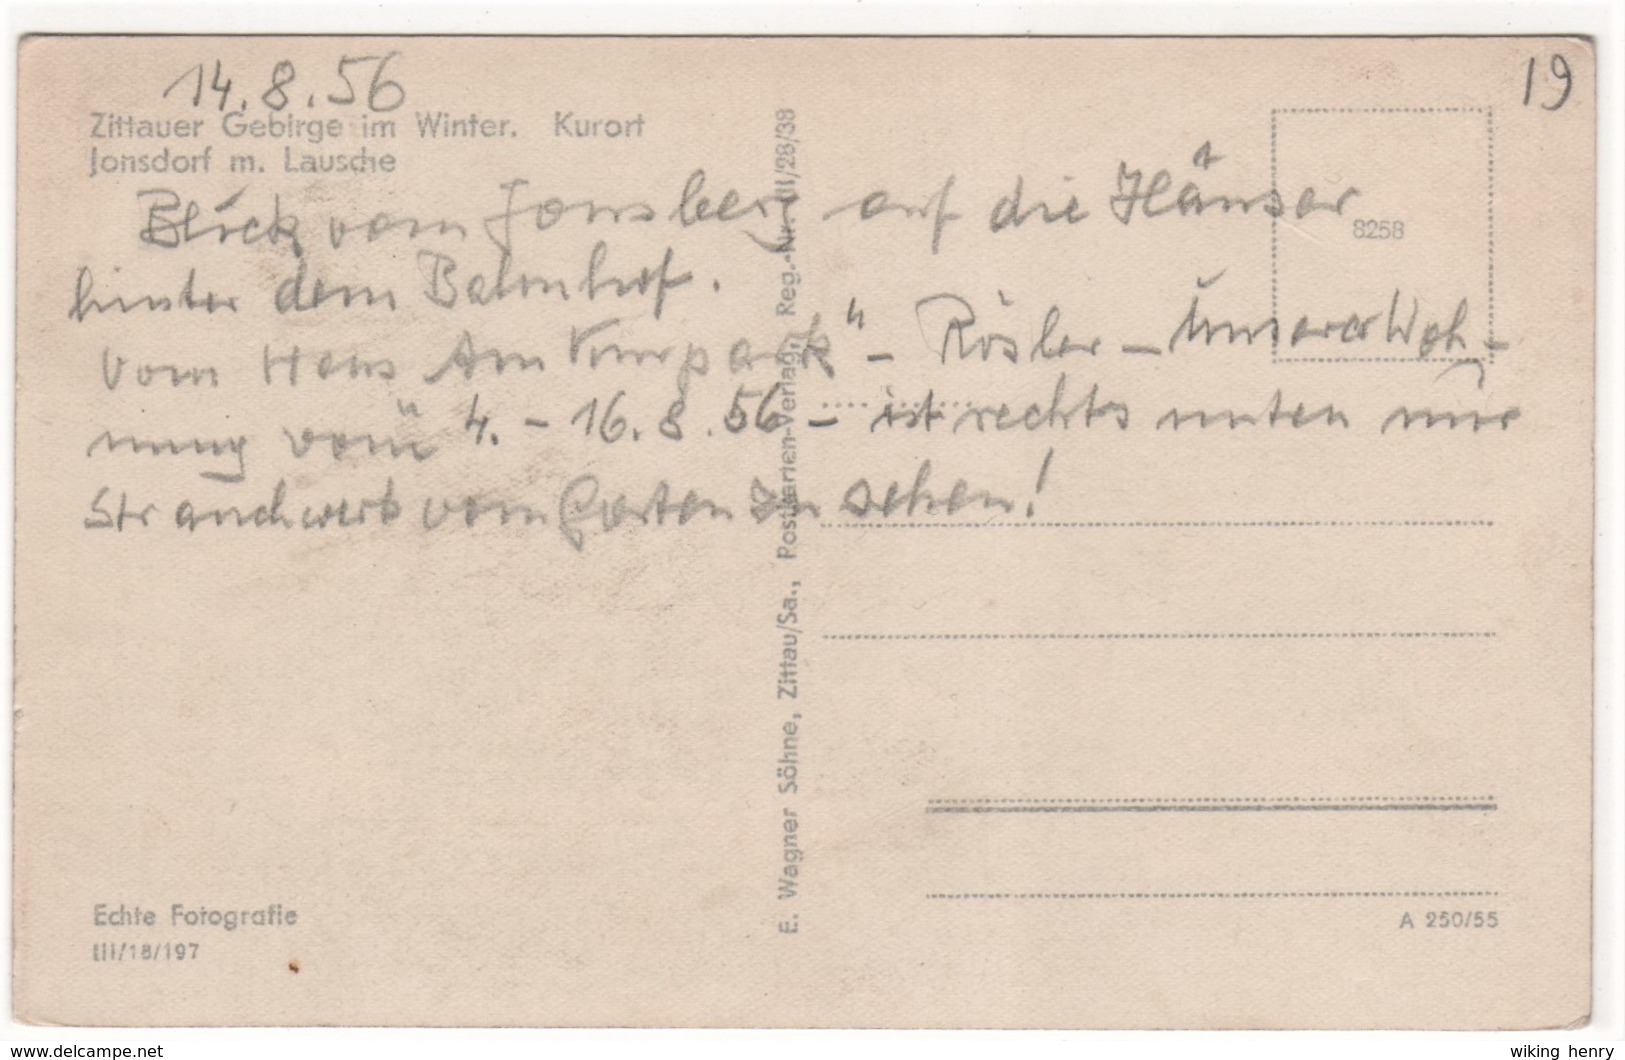 14.8.56
19
Zittauer Gebirge im Winter. Kurort
Jonsdorf m. Lausche
Blick vom Jonsberg auf die Häuser
hinter dem Bahnhof.
Vom Haus „Am Kurpark“ – Rösler – unserer Woh-
nung vom 4. – 16.8.56 – ist rechts unten nur
Strauchwerk vom Garten zu sehen!
8258
E. Wagner Söhne, Zittau/Sa., Postkarten-Verlag, Reg.-Nr. III/28/38
Echte Fotografie
III/18/197
A 250/55
www.delcampe.net
wiking henry